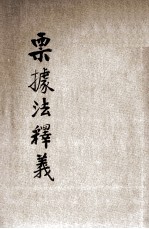 票據法釋義